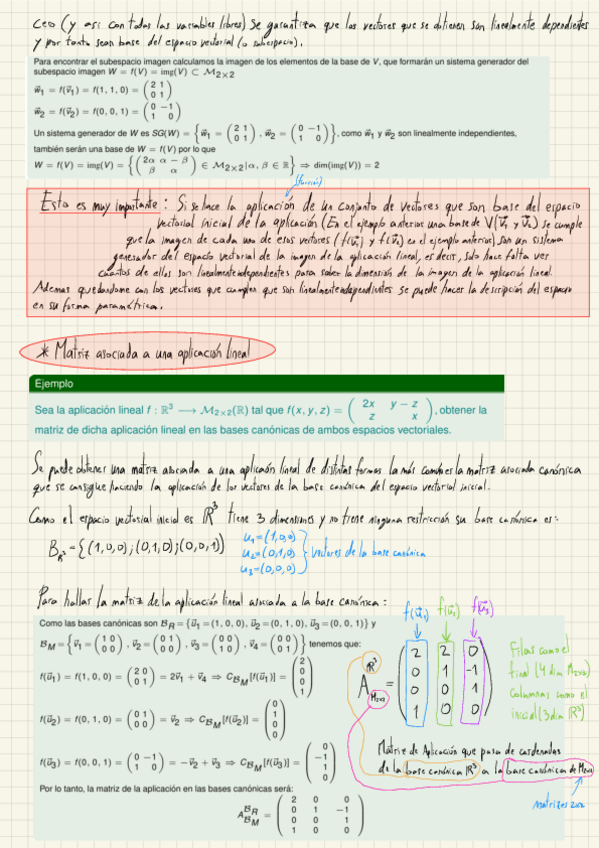 cero (y así con todas las variables libres) se garantiza que los vectores que se obtienen son linealmente dependientes
y por tanto sean base del espacio vectorial (o subespacio).
Para encontrar el subespacio imagen calculamos la imagen de los elementos de la base de V, que formarán un sistema generador del
subespacio imagen W = f(V) = img(V) ⊂ M₂ₓ₂
w⃗₁ = f(v⃗₁) = f(1, 1, 0) = (2 1 / 0 1)
w⃗₂ = f(v⃗₂) = f(0, 0, 1) = (0 −1 / 1 0)
Un sistema generador de W es SG(W) = { w⃗₁ = (2 1 / 0 1) , w⃗₂ = (0 −1 / 1 0) }, como w⃗₁ y w⃗₂ son linealmente independientes,
también serán una base de W = f(V) por lo que
W = f(V) = img(V) = { (2α α − β / β α) ∈ M₂ₓ₂ | α, β ∈ ℝ } ⇒ dim(img(V)) = 2
(función)
Esto es muy importante: Si se hace la aplicación de un conjunto de vectores que son base del espacio
vectorial inicial de la aplicación (En el ejemplo anterior una base de V (v⃗₁ y v⃗₂) se cumple
que la imagen de cada uno de esos vectores (f(v⃗₁) y f(v⃗₂) en el ejemplo anterior) son un sistema
generador del espacio vectorial de la imagen de la aplicación lineal, es decir, solo hace falta ver
cuantos de ellos son linealmente independientes para saber la dimensión de la imagen de la aplicación lineal.
Ademas quedandome con los vectores que cumplen que son linealmente independientes se puede hacer la descripción del espacio
en su forma paramétrica.
* Matriz asociada a una aplicación lineal
Ejemplo
Sea la aplicación lineal f : ℝ³ ⟶ M₂ₓ₂(ℝ) tal que f(x, y, z) = (2x y − z / z x), obtener la
matriz de dicha aplicación lineal en las bases canónicas de ambos espacios vectoriales.
Se puede obtener una matriz asociada a una aplicación lineal de distintas formas la más común es la matriz asociada canónica
que se consigue haciendo la aplicación de los vectores de la base canónica del espacio vectorial inicial.
Como el espacio vectorial inicial es ℝ³ tiene 3 dimensiones y no tiene ninguna restricción su base canónica es:
B_ℝ³ = {(1,0,0);(0,1,0);(0,0,1)}
u₁=(1,0,0)
u₂=(0,1,0) } vectores de la base canónica
u₃=(0,0,0)
Para hallar la matriz de la aplicación lineal asociada a la base canónica:
Como las bases canónicas son B_R = {u⃗₁ = (1, 0, 0), u⃗₂ = (0, 1, 0), u⃗₃ = (0, 0, 1)} y
B_M = { v⃗₁ = (1 0 / 0 0) , v⃗₂ = (0 1 / 0 0) , v⃗₃ = (0 0 / 1 0) , v⃗₄ = (0 0 / 0 1) } tenemos que:
f(u⃗₁) = f(1, 0, 0) = (2 0 / 0 1) = 2v⃗₁ + v⃗₄ ⇒ C_B_M[f(u⃗₁)] = (2 / 0 / 0 / 1)
f(u⃗₂) = f(0, 1, 0) = (0 1 / 0 0) = v⃗₂ ⇒ C_B_M[f(u⃗₂)] = (0 / 1 / 0 / 0)
f(u⃗₃) = f(0, 0, 1) = (0 −1 / 1 0) = −v⃗₂ + v⃗₃ ⇒ C_B_M[f(u⃗₃)] = (0 / −1 / 1 / 0)
Por lo tanto, la matriz de la aplicación en las bases canónicas será:
A^B_R_B_M = (2 0 0 / 0 1 −1 / 0 0 1 / 1 0 0)
f(u⃗₁) f(u⃗₂) f(u⃗₃)
A^ℝ³_M₂ₓ₂ = (2 2 0 / 0 1 -1 / 0 0 1 / 1 0 0)
Filas como el
final (4 dim M₂ₓ₂)
columnas como el
inicial (3 dim ℝ³)
Matriz de Aplicación que pasa de cordenadas
de la base canónica ℝ³ a la base canónica de M₂ₓ₂
matrizes 2x2